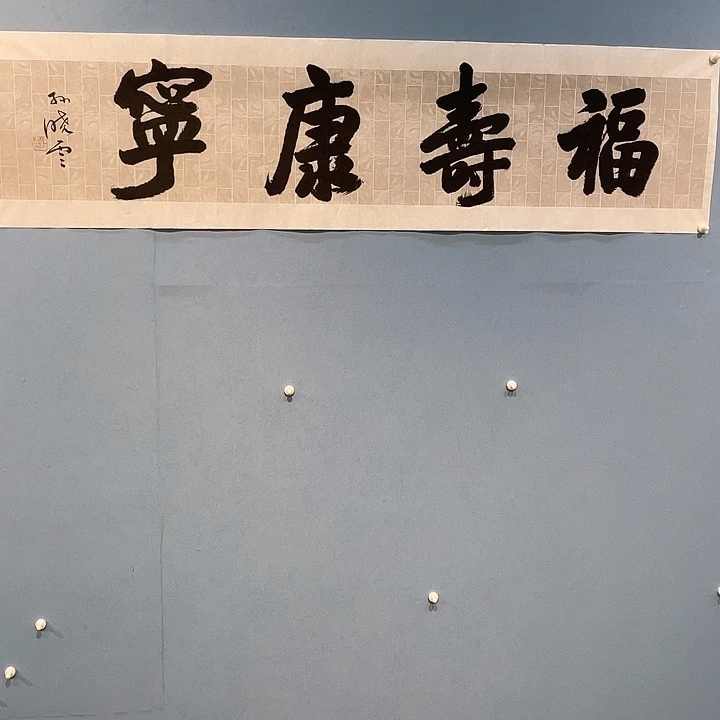 福壽康寧
孙晓云